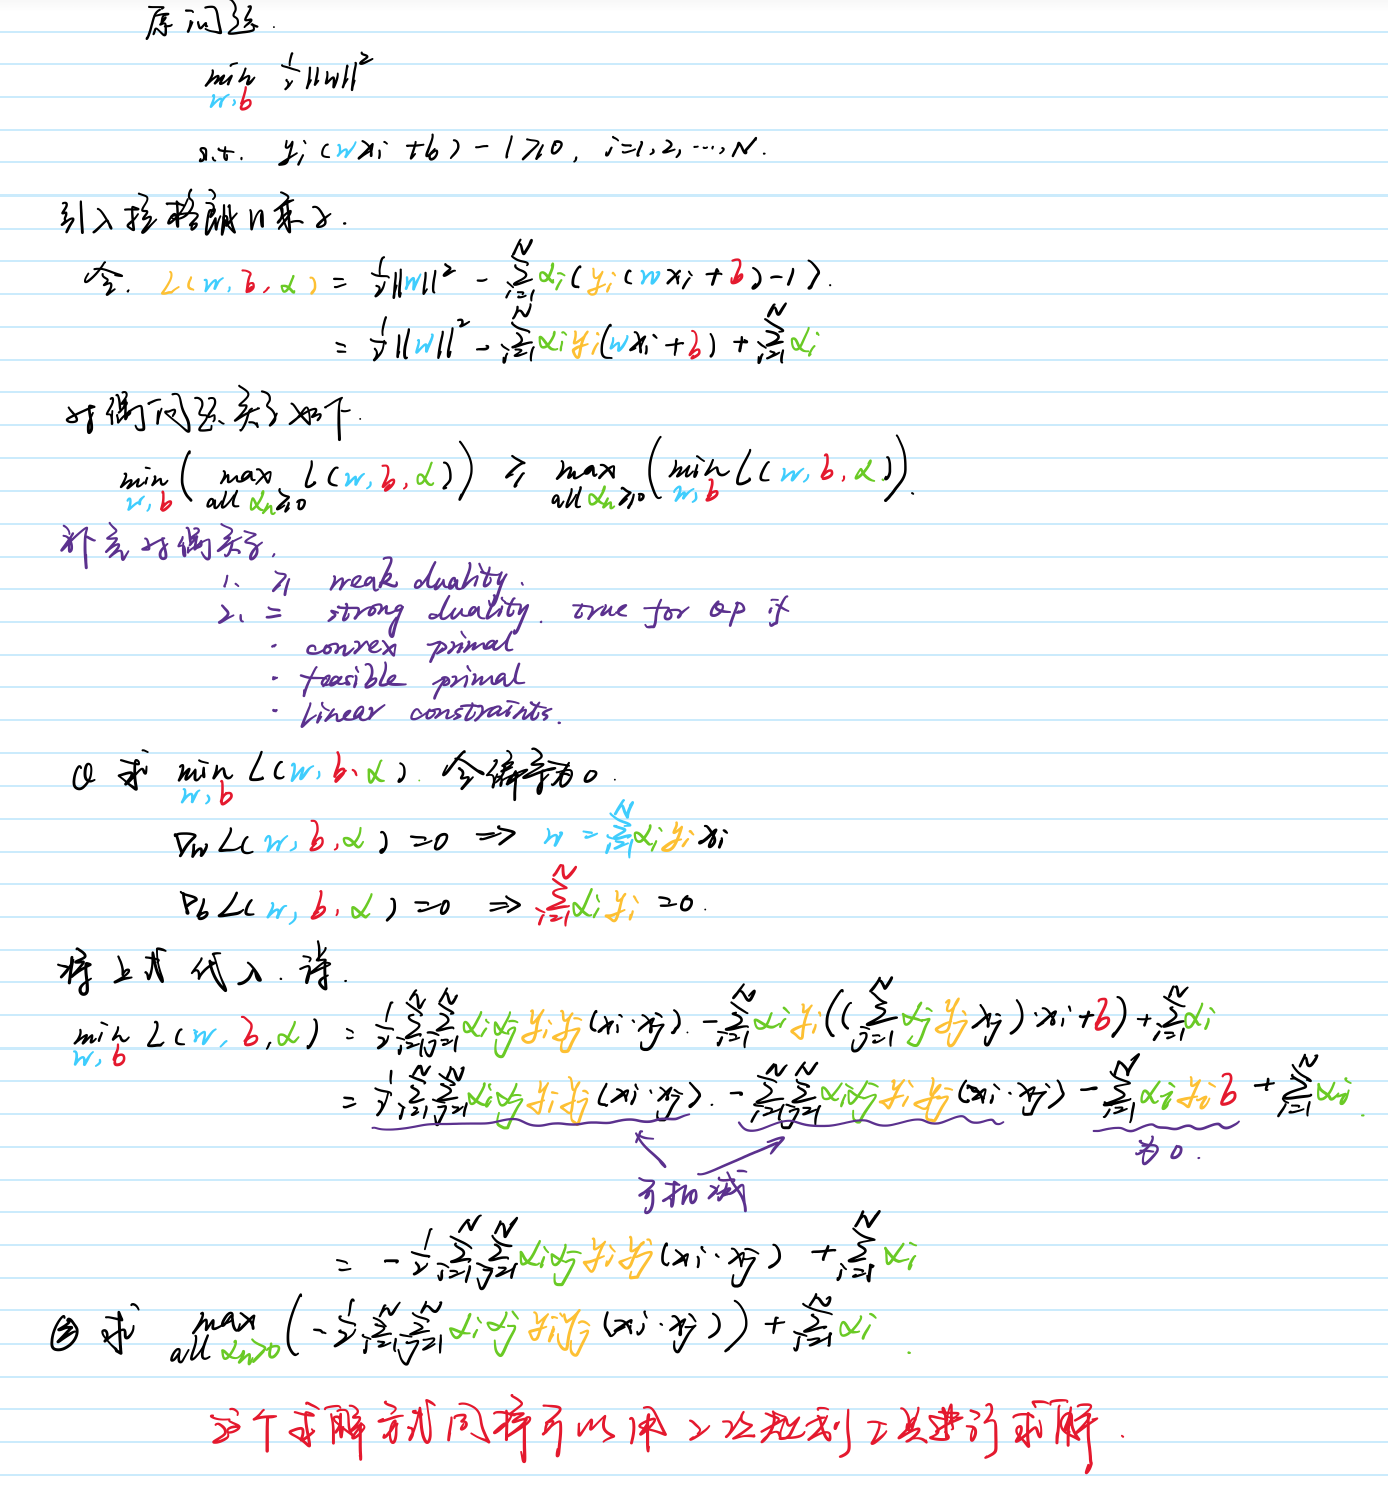 原问题.
min 1/2 ||w||²
w,b
s.t. yi(wxi+b)-1≥0, i=1,2,...,N.
引入拉格朗日乘子.
令. L(w,b,α) = 1/2||w||² - Σ_{i=1}^{N} αi(yi(wxi+b)-1).
= 1/2||w||² - Σ_{i=1}^{N} αiyi(wxi+b) + Σ_{i=1}^{N} αi
对偶问题关系如下.
min_{w,b} ( max_{all αn≥0} L(w,b,α) ) ≥ max_{all αn≥0} ( min_{w,b} L(w,b,α) ).
补充对偶关系.
1. ≥ weak duality.
2. = strong duality. true for QP if
· convex primal
· feasible primal
· linear constraints.
① 求 min_{w,b} L(w,b,α). 令偏导为0.
∇w L(w,b,α)=0 => w = Σ_{i=1}^{N} αiyixi
∇b L(w,b,α)=0 => Σ_{i=1}^{N} αiyi =0.
将上式代入.得.
min_{w,b} L(w,b,α) = 1/2 Σ_{i=1}^{N} Σ_{j=1}^{N} αiαjyiyj(xi·xj). - Σ_{i=1}^{N} αiyi((Σ_{j=1}^{N} αjyjxj)·xi+b) + Σ_{i=1}^{N} αi
= 1/2 Σ_{i=1}^{N} Σ_{j=1}^{N} αiαjyiyj(xi·xj). - Σ_{i=1}^{N} Σ_{j=1}^{N} αiαjyiyj(xi·xj) - Σ_{i=1}^{N} αiyib + Σ_{i=1}^{N} αi.
为0.
可抵减
= -1/2 Σ_{i=1}^{N} Σ_{j=1}^{N} αiαjyiyj(xi·xj) + Σ_{i=1}^{N} αi
② 求 max_{all αn≥0} (-1/2 Σ_{i=1}^{N} Σ_{j=1}^{N} αiαjyiyj(xi·xj)) + Σ_{i=1}^{N} αi.
这个求解方式同样可以用二次规划工具进行求解.